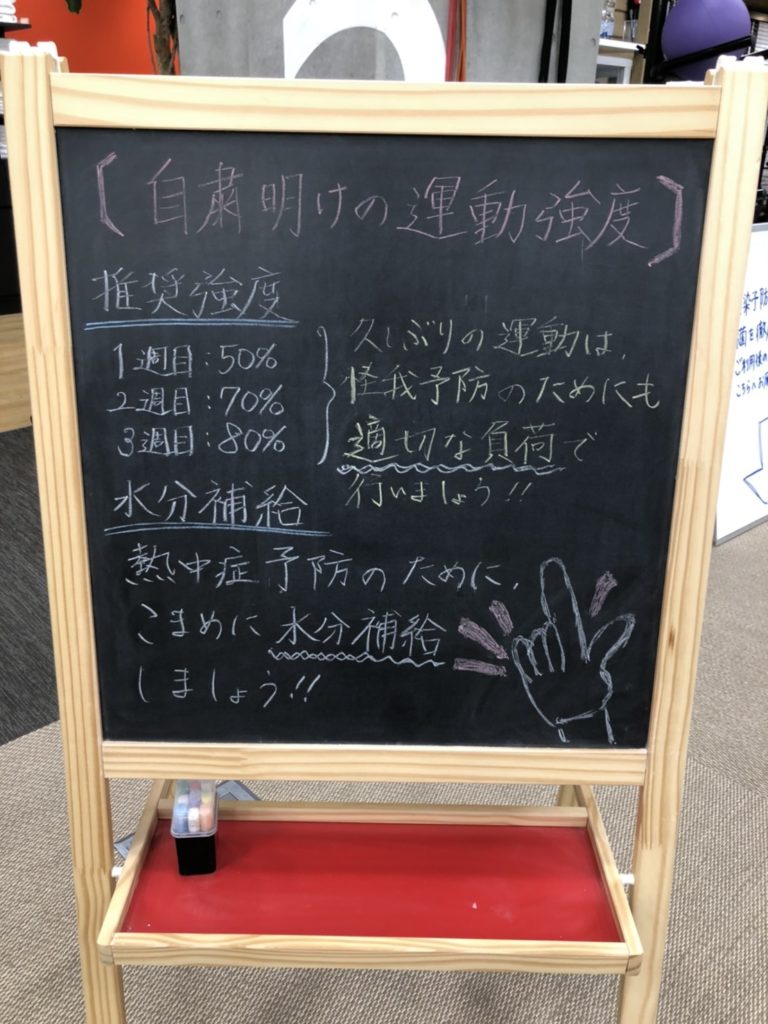 【自粛明けの運動強度】
推奨強度
1週目:50%
2週目:70%
3週目:80%
久しぶりの運動は、
怪我予防のためにも
適切な負荷で
行いましょう!!
水分補給
熱中症予防のために、
こまめに水分補給
しましょう!!
染予防
菌を徹
ご利用後の
こちらへお